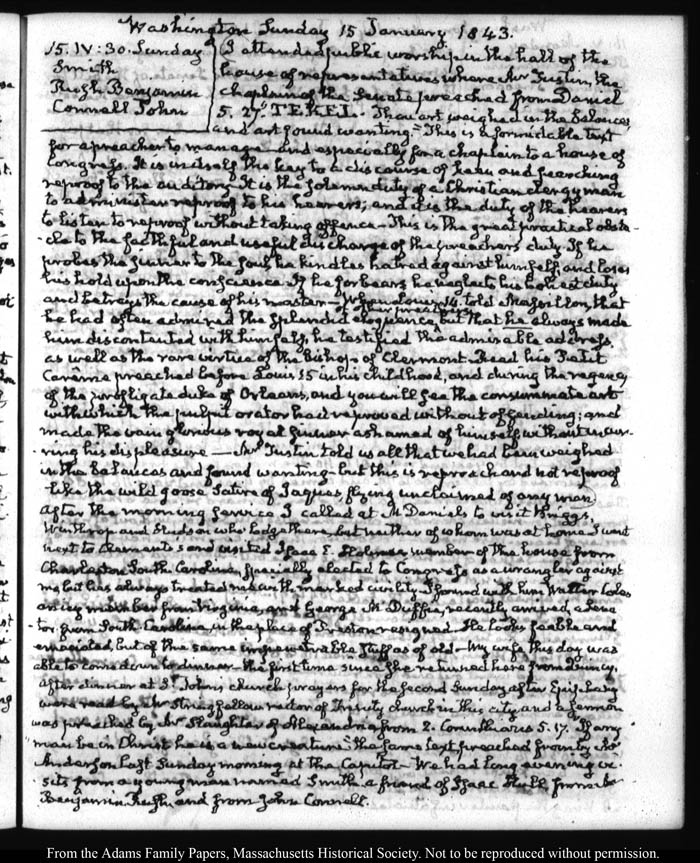 Washington Sunday 15 January 1843.
15. IV:30. Sunday
Smith
Rush Benjamin
Connell John
I attended public worship in the hall of the
house of representatives where Mr Tustin, the
chaplain of the Senate preached from Daniel
5. 27. TEKEL. Thou art weighed in the balances,
and art found wanting. This is a formidable text
for a preacher to manage and especially for a chaplain to a house of
Congress. It is in itself the key to a discourse of keen and searching
reproof to the auditory. It is the solemn duty of a Christian clergyman
to administer reproof to his hearers; and it is the duty of the hearers
to listen to reproof without taking offence. This is the great practical obsta-
-cle to the faithful and useful discharge of the preachers duty. If he
probes the sinner to the soul, he kindles hatred against himself, and loses
his hold upon the conscience. If he forbears he neglects his own duty
and betrays the cause of his master. When Louis 14. told Massillon, that
he had often admired the splendid eloquence but that he always made
him discontented with himself, he testified the admirable address,
as well as the rare virtue of the Bishop of Clermont. Read his Petit
Carême preached before Louis 15 in his childhood, and during the regency
of the profligate duke of Orleans, and you will see the consummate art
with which the pulpit orator had reproved without offending; and
made the vain glorious royal sinner ashamed of himself without incur-
-ring his displeasure — Mr Tustin told us all that we had been weighed
in the balances and found wanting - but this is reproach and not reproof
-like the wild goose Satire of Jaques flying unclaimed of any man
After the morning service I called at McDaniels to visit Briggs,
Winthrop and Hudson who lodge there, but neither of whom was at home. I went
next to Clements's and visited Isaac E. Holmes, member of the house from
Charleston South Carolina, specially elected to Congress as a wrangler against
me, but has always treated me with marked civility. I found with him Walter Coles
a member from Virginia, and George McDuffie, recently arrived, a Sena-
-tor from South Carolina in the place of Preston resigned. He looks feeble and
emaciated, but of the same impenetrable stuff as of old. My wife this day was
able to come down to dinner the first time since she returned here from Quincy.
After dinner at St. John's church prayers for the second Sunday after Epiphany
were read by Mr Stringfellow rector of Trinity church in this city and a Sermon
was preached by Mr Slaughter of Alexandria from 2. Corinthians 5. 17. If any
man be in Christ he is a new creature: the same text preached from by Mr
Anderson last Sunday morning at the Capitol. We had long evening vi-
sits from a young man named Smith a friend of Isaac Hull from
Benjamin Rush and from John Connell.
From the Adams Family Papers, Massachusetts Historical Society. Not to be reproduced without permission.